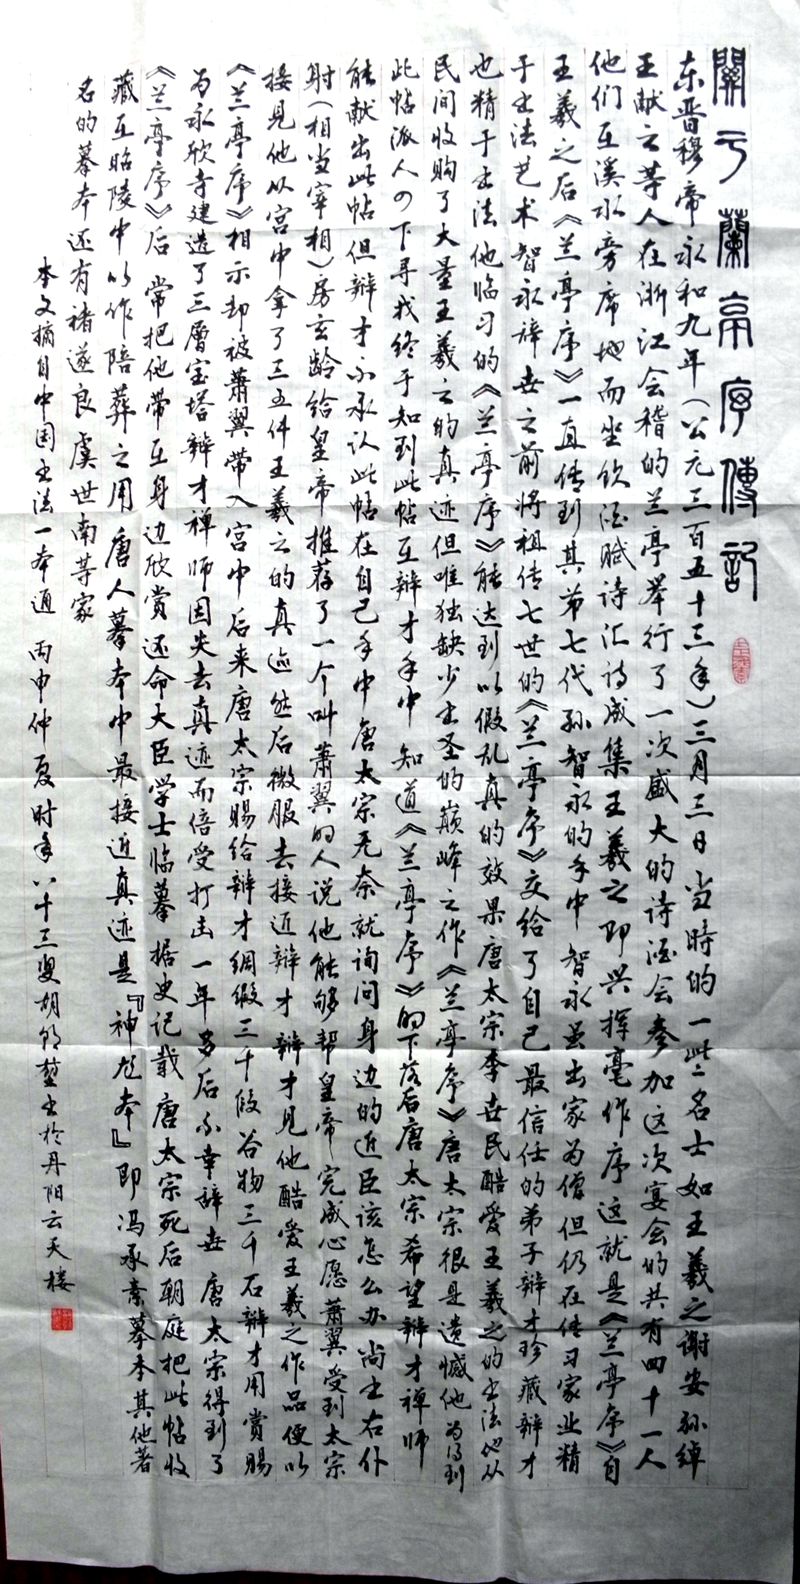 關于蘭亭序傳記
东晋穆帝永和九年(公元三百五十三年)三月三日当時的一些名士如王羲之谢安孙绰
王献之等人在浙江会稽的兰亭举行了一次盛大的诗酒会参加这次宴会的共有四十一人
他们在溪水旁席地而坐饮酒赋诗汇诗成集王羲之即兴挥毫作序这就是《兰亭序》自
王羲之后《兰亭序》一直传到其第七代孙智永的手中智永虽出家为僧但仍在传习家业精
于书法艺术智永辞世之前将祖传七世的《兰亭序》交给了自己最信任的弟子辩才珍藏辩才
也精于书法他临习的《兰亭序》能达到以假乱真的效果唐太宗李世民酷爱王羲之的书法他从
民间收购了大量王羲之的真迹但唯独缺少书圣的巅峰之作《兰亭序》唐太宗很是遗憾他为得到
此帖派人四下寻找终于知到此帖在辩才手中知道《兰亭序》的下落后唐太宗希望辩才禅师
能献出此帖但辩才不承认此帖在自己手中唐太宗无奈就询问身边的近臣该怎么办尚书右仆
射(相当宰相)房玄龄给皇帝推荐了一个叫萧翼的人说他能够帮皇帝完成心愿萧翼受到太宗
接見他从宫中拿了三五件王羲之的真迹然后微服去接近辩才辩才見他酷爱王羲之作品便以
《兰亭序》相示却被萧翼带入宫中后来唐太宗賜给辩才綢缎三千假谷物三千石辩才用赏賜
为永欣寺建造了三層宝塔辩才禅师因失去真迹而倍受打击一年多后不幸辞世唐太宗得到了
《兰亭序》后常把他带在身边欣赏还命大臣学士临摹据史记载唐太宗死后朝庭把此帖收
藏在昭陵中以作陪葬之用唐人摹本中最接近真迹是『神龙本』即冯承素摹本其他著
名的摹本还有褚遂良虞世南等家
本文摘自中国书法一本通丙申仲夏时年八十三叟胡书於丹阳云天楼